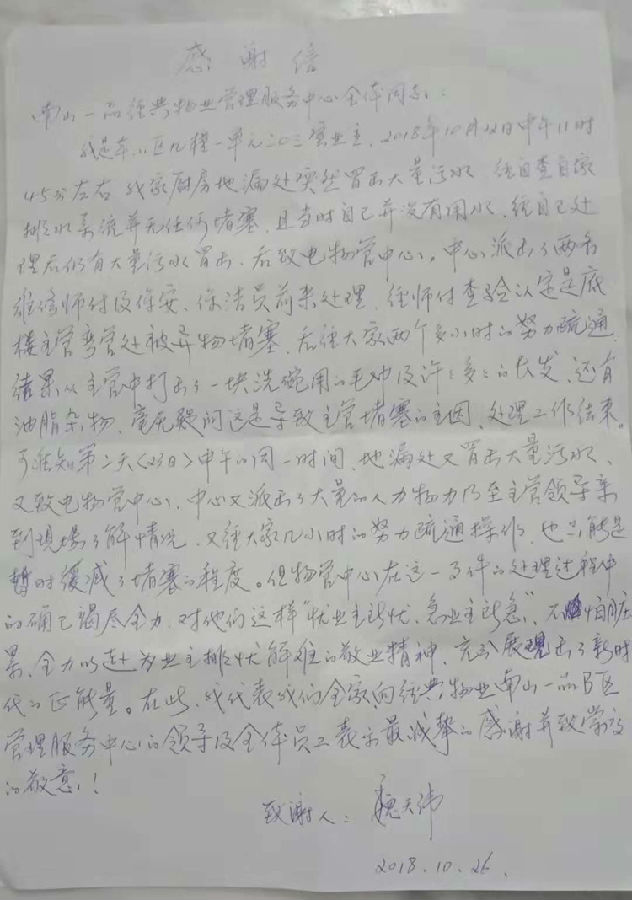 感谢信
南山一品经典物业管理服务中心全体同志：
我是本小区几幢一单元二0三室业主，2018年10月22日中午11时
45分左右 我家厨房地漏处突然冒出大量污水 经自查自家
排水系统并无任何堵塞，且当时自己并没有用水，经自己处
理后仍有大量污水冒出，后致电物管中心。中心派出了两名
维修师付及保安、保洁员前来处理，经师付查验认定是底
楼主管弯管处被异物堵塞，后经大家两个多小时的努力疏通，
结果从主管中打出了一块洗碗用的毛巾及许许多多的长发、还有
油脂杂物，毫无疑问这是导致主管堵塞的主因，处理工作结束。
可谁知第二天（23日）中午的同一时间，地漏处又冒出大量污水、
又致电物管中心，中心又派出了大量的人力物力乃至主管领导亲
到现场了解情况，又经大家几小时的努力疏通操作，也只能是
暂时缓减了堵塞的程度。但物管中心在这一事件的处理过程中
的确已竭尽全力，对他们这样“忧业主所忧、急业主所急”，不怕脏
累、全力以赴为业主排忧解难的敬业精神，充分展现出了新时
代的正能量。在此，我代表我们全家向经典物业南山一品B区
管理服务中心的领导及全体员工表示最诚挚的感谢并致崇高
的敬意！
致谢人：魏天伟
2018.10.26.